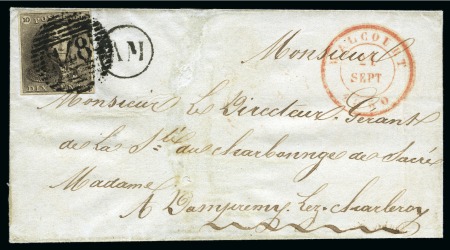 10
DIX
128
AM
WALCOURT
SEPT
Monsieur
Monsieur Le Directeur Gérant
de La Sté du charbonnge de Sacré
Madame
A Dampremy Lez Charleroy